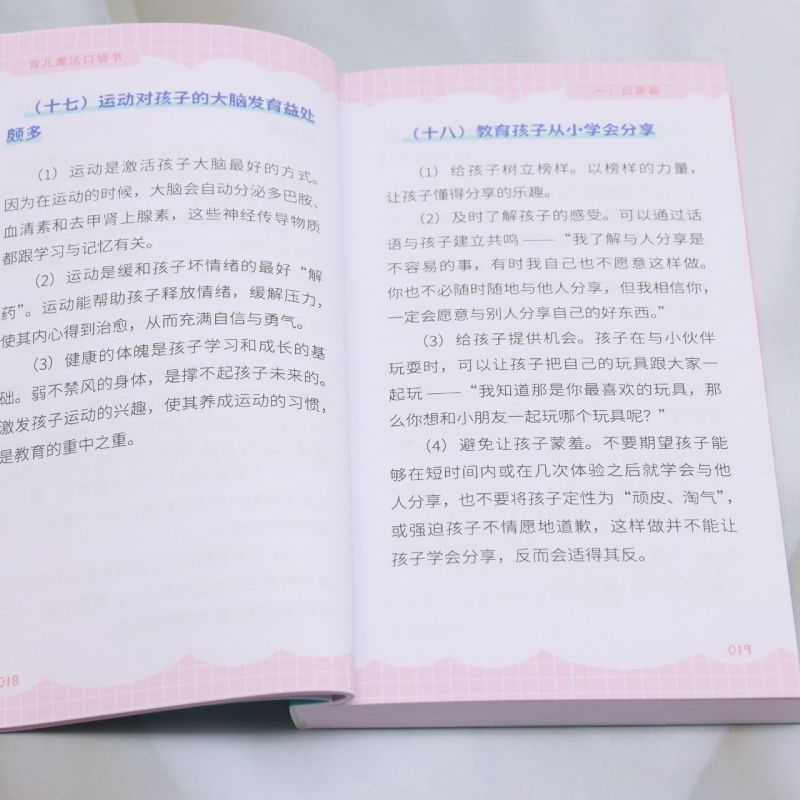 育儿魔法口袋书
（十七）运动对孩子的大脑发育益处
颇多
（1）运动是激活孩子大脑最好的方式。
因为在运动的时候，大脑会自动分泌多巴胺、
血清素和去甲肾上腺素，这些神经传导物质
都跟学习与记忆有关。
（2）运动是缓和孩子坏情绪的最好“解
药”。运动能帮助孩子释放情绪，缓解压力，
使其内心得到治愈，从而充满自信与勇气。
（3）健康的体魄是孩子学习和成长的基
础。弱不禁风的身体，是撑不起孩子未来的。
激发孩子运动的兴趣，使其养成运动的习惯，
是教育的重中之重。
018
一、启蒙篇
（十八）教育孩子从小学会分享
（1）给孩子树立榜样。以榜样的力量，
让孩子懂得分享的乐趣。
（2）及时了解孩子的感受。可以通过话
语与孩子建立共鸣——“我了解与人分享是
不容易的事，有时我自己也不愿意这样做。
你也不必随时随地与他人分享，但我相信你，
一定会愿意与别人分享自己的好东西。”
（3）给孩子提供机会。孩子在与小伙伴
玩耍时，可以让孩子把自己的玩具跟大家一
起玩——“我知道那是你最喜欢的玩具，那
么你想和小朋友一起玩哪个玩具呢？”
（4）避免让孩子蒙羞。不要期望孩子能
够在短时间内或在几次体验之后就学会与他
人分享，也不要将孩子定性为“顽皮、淘气”，
或强迫孩子不情愿地道歉，这样做并不能让
孩子学会分享，反而会适得其反。
019